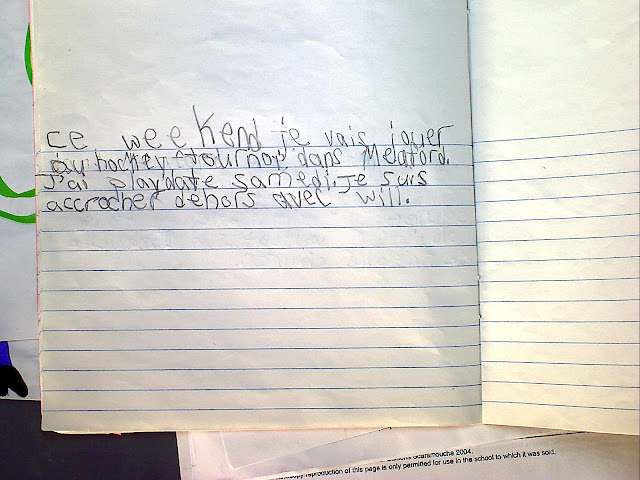 ce weekend je vais jouer
au hockey dans Meaford.
J'ai playdate samedi. Je suis
accrocher dehors avec will.
Scaramouche 2004.
reproduction of this page is only permitted for use in the school to which it was sold.